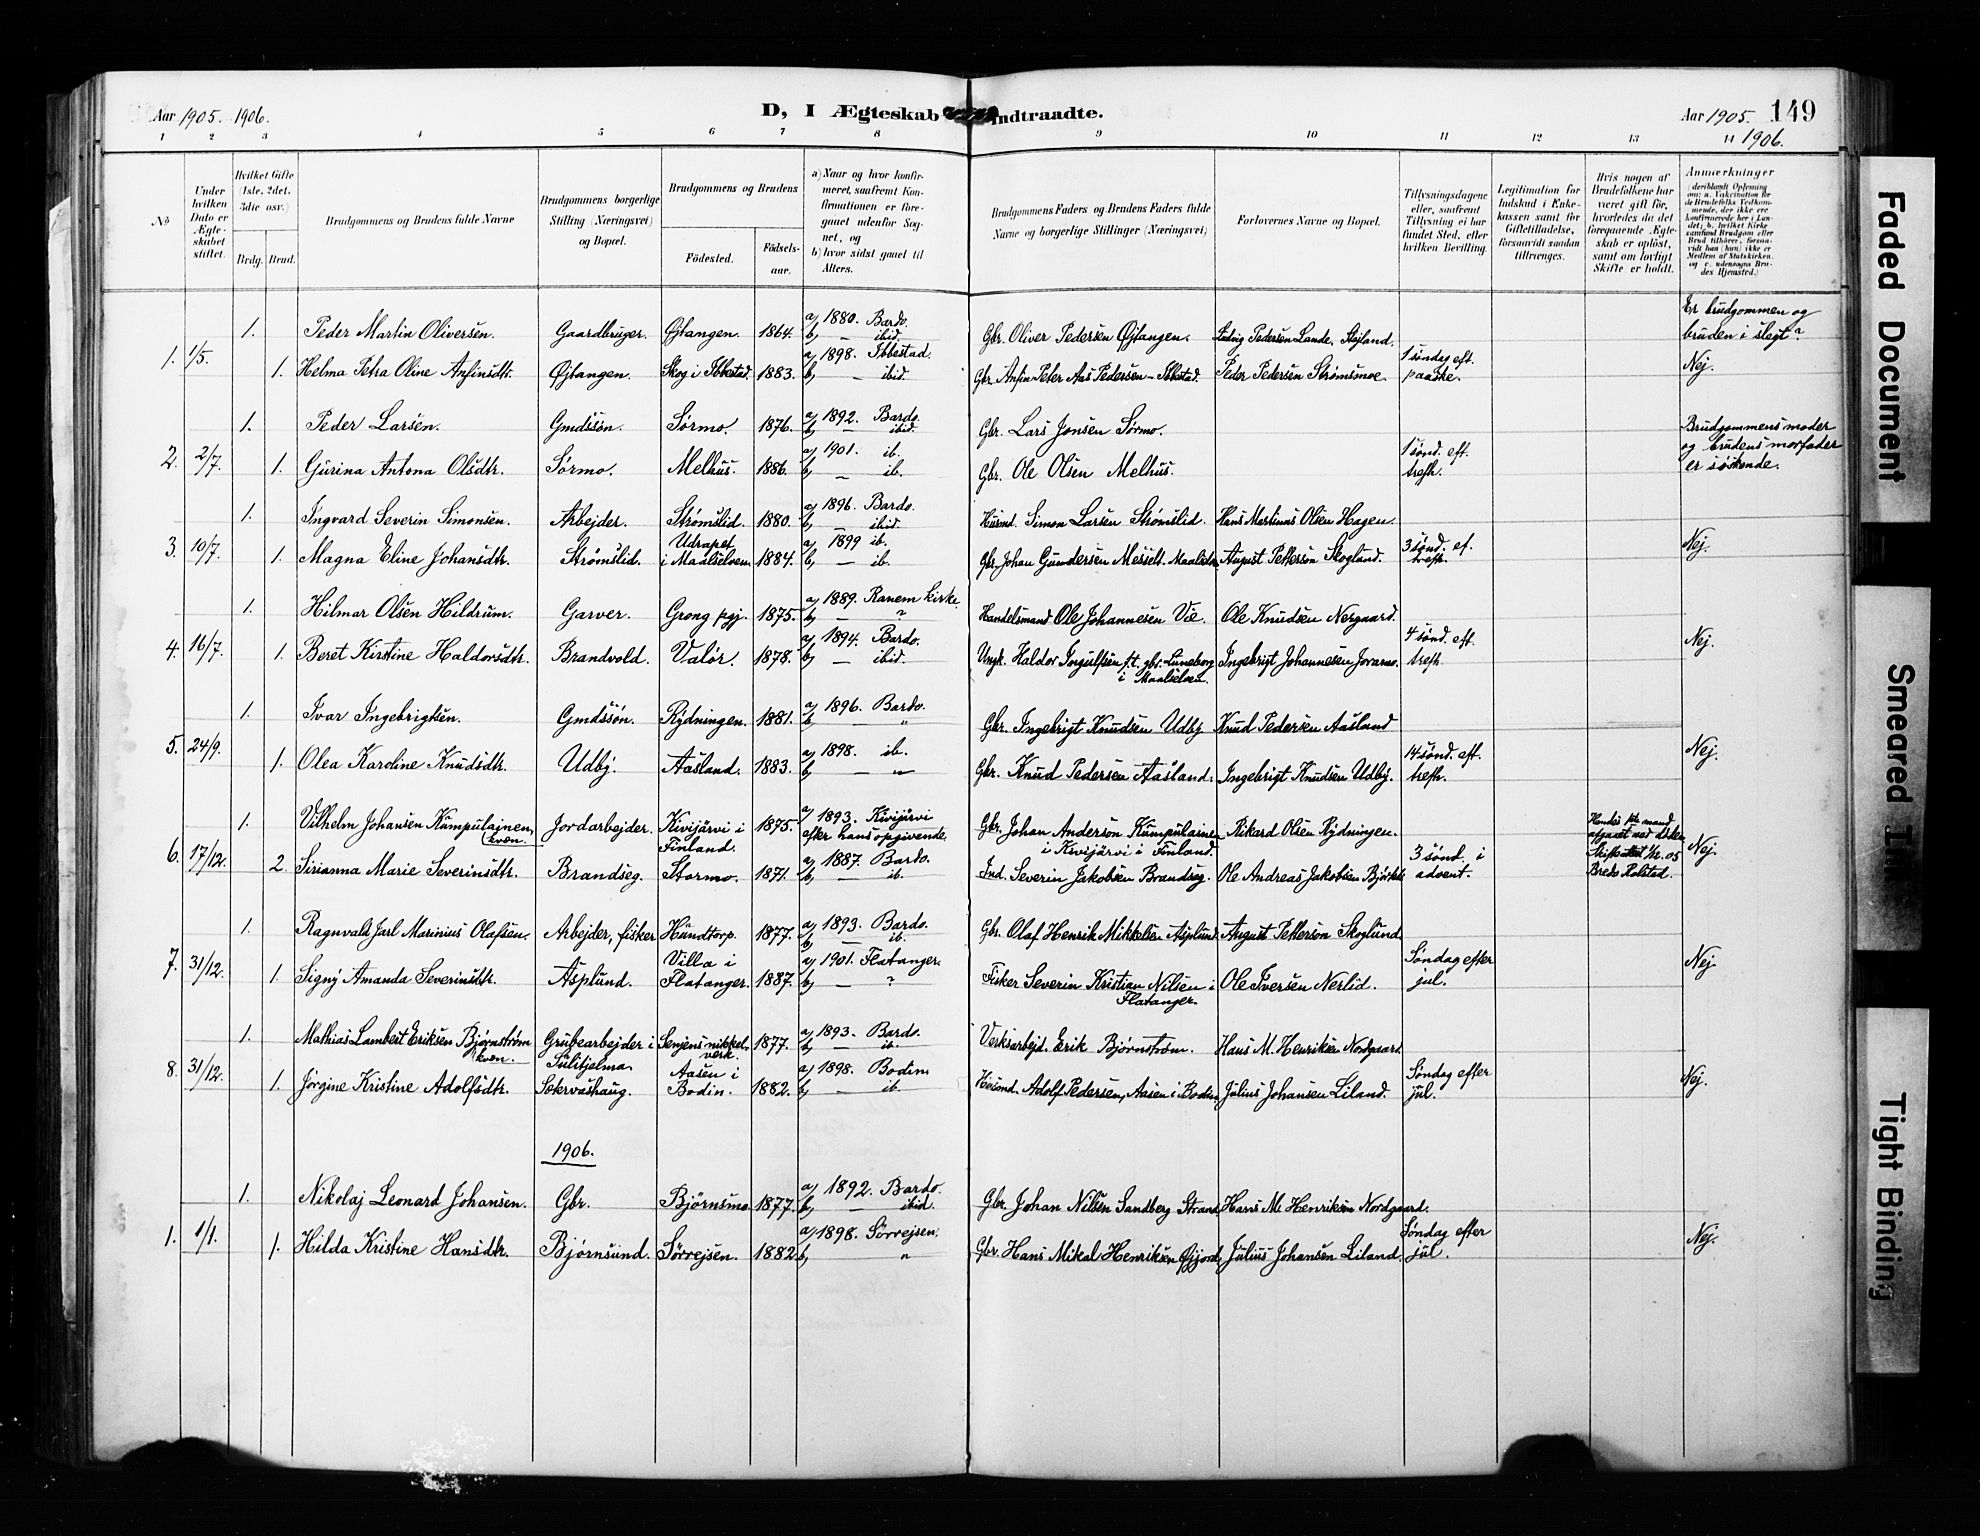 Aar 1905. 1906.
D, I Ægteskab Indtraadte.
Aar 1905. 149
1906.
1 2 3 4 5 6 7 8 9 10 11 12 13 14
№
Under hvilken Dato er Ægteskabet stiftet.
Hvilket Gifte (1ste, 2det, 3die osv.)
Brdg. Brud.
Brudgommens og Brudens fulde Navne
Brudgommens borgerlige Stilling (Næringsvei) og Bopæl.
Brudgommens og Brudens
Födested.
Födselsaar.
a) Naar og hvor konfirmeret, saafremt Konfirmationen er foregaaet udenfor Sognet, og
b) hvor sidst gaaet til Alters.
Brudgommens Faders og Brudens Faders fulde Navne og borgerlige Stillinger (Næringsvei)
Forlovernes Navne og Bopæl.
Tillysningsdagene eller, saafremt Tillysning ei har fundet Sted, efter hvilken Bevilling.
Legitimation for Indskud i Enkekassen samt for Giftetilladelse, forsaavidt saadan tiltrænges.
Hvis nogen af Brudefolkene har været gift før, hvorledes da det foregaaende Ægteskab er oplöst, samt om lovligt Skifte er holdt.
Anmærkninger
(deriblandt Oplysning om: a. Vaccination for de Brudefolks Vedkommende, der ikke ere konfirmerede her i Landet; b. hvilket Kirkesamfund Brudgom eller Brud tilhører, forsaavidt han (hun) ikke er Medlem af Statskirken, og c. udensogns Brudes Hjemsted.)
1. Peder Martin Oliversen. Gaardbruger. Øjtangen. 1864. a) 1880. Bardo. b) — ibid. Gbr. Oliver Pedersen Øjtangen. Ludvig Pedersen Lande, Stejland. Er brudgommen og bruden i slegt?
1. 1/5. 1. Helma Petra Oline Anfinsdtr. Øjtangen. Skog i Ibbestad. 1883. a) 1898. Ibbestad. b) — ibid. Gbr. Anfin Peter Aas Pedersen - Ibbestad. Peder Pedersen Strømsmoe. 1 söndag eft. paaske. Nej.
1. Peder Larsen. Gmdssøn. Sørmo. 1876. a) 1892. Bardo. b) — ibid. Gbr. Lars Jonsen Sørmo. Brudgommens moder og brudens morfader er söskende.
2. 2/7. 1. Gurina Antona Olsdtr. Sørmo. Melhus. 1886. a) 1901. ib. b) — ib. Gbr. Ole Olsen Melhus. 1 sönd. eft. trefh.
1. Ingvard Severin Simonsen. Arbejder. Strømslid. 1880. a) 1896. Bardo. b) — ibid. Husmd. Simon Larsen Strømslid. Hans Martinus Olsen Hagen.
3. 10/7. 1. Magna Eline Johansdtr. Strømslid. Udrapet i Maalselven. 1884. a) 1899 ib. b) — ib. Gbr. Johan Gundersen Messelt. August Petterson Skoglund. 3 sønd. ef. trefh. Nej.
1. Hilmar Olsen Hildrum. Garver. Grong pgj. 1875. a) 1889. Ranem kirke. b) — ? Handelsmand Ole Johannesen Vie. Ole Knudsen Nergaard.
4. 16/7. 1. Beret Kirstine Haldorsdtr. Brandvold. Valør. 1878. a) 1894. Bardo. b) — ibid. Ungk. Haldor Ingulfsen f.t. gbr. Luneborg i Maalselven. Ingebrigt Johannesen Joramo. 4 sønd. eft. trefh. Nej.
1. Ivar Ingebrigtsen. Gmdssøn. Rydningen. 1881. a) 1896. Bardo. b) „ Gbr. Ingebrigt Knudsen Udby. Knud Pedersen Aasland
5. 24/9. 1. Olea Karoline Knudsdtr. Udby. Aasland. 1883. a) 1898. ib. b) — „ Gbr. Knud Pedersen Aasland. Ingebrigt Knudsen Udby. 14 sönd. eft. trefh. Nej.
1. Vilhelm Johansen Kumpulainen, kvæn. Jordarbejder. Kivijärvi i Finland. 1875. a) 1893. Kivijärvi efter hans opgivende. Gbr. Johan Anderson Kumpulainen i Kivijärvi i Finland. Rikard Olsen Rydningen. Hendes 1ste mand afgaaet ved døden
6. 17/12. 2. Sirianna Marie Severinsdtr. Brandseg. Stormo. 1871. a) 1887. Bardo. b) — ib. Ind. Severin Jakobsen Brandseg. Ole Andreas Jakobsen 3 sønd. i advent. Nej.
1. Ragnvald Jarl Marinius Olafsen. Arbejder, fisker Hundtorp. 1877. a) 1893. Bardo. b) — ib. Gbr. Olaf Henrik Mikkelsen Asplund August Petterson Skoglund
7. 31/12. 1. Signy Amanda Severinsdtr. Asplund. Villa i Flatanger. 1887. a) 1901. Flatanger. b) — ? Fisker Severin Kristian Nilsen i Flatanger. Ole Iversen Nerlid. Söndag efter jul. Nej
1. Mathias Lambert Eriksen Bjørnstrøm kvæn. Grubearbejder i Sulitjelma Senjens nikkelverk. 1877. a) 1893. Bardo. b) — ib. Verksarbejd. Erik Bjørnstrøm. Hans M. Henriksen Nordgaard.
8. 31/12. 1. Jörgine Kristine Adolfsdtr. Sekervashaug. Aasen i Bodin. 1882. a) 1898. Bodin b) — ib. Husmd. Adolf Pedersen, Aasen i Bodin. Julius Johansen Liland. Søndag efter jul. Nej.
1906.
1. Nikolaj Leonard Johansen. Gbr. Bjørnsmo. 1877. a) 1892. Bardo. b) — ibid. Gbr. Johan Nilsen Sandberg Strand Hans M. Henriksen Nordgaard.
1. 1/1. 1. Hilda Kristine Hansdtr. Bjørnsund. Sørrejsen. 1882 a) 1898. Sørrejsen. b) „ Gbr. Hans Mikal Henriksen Julius Johansen Liland. Søndag efter jul. Nej.
Faded Document
Smeared
Tight Binding